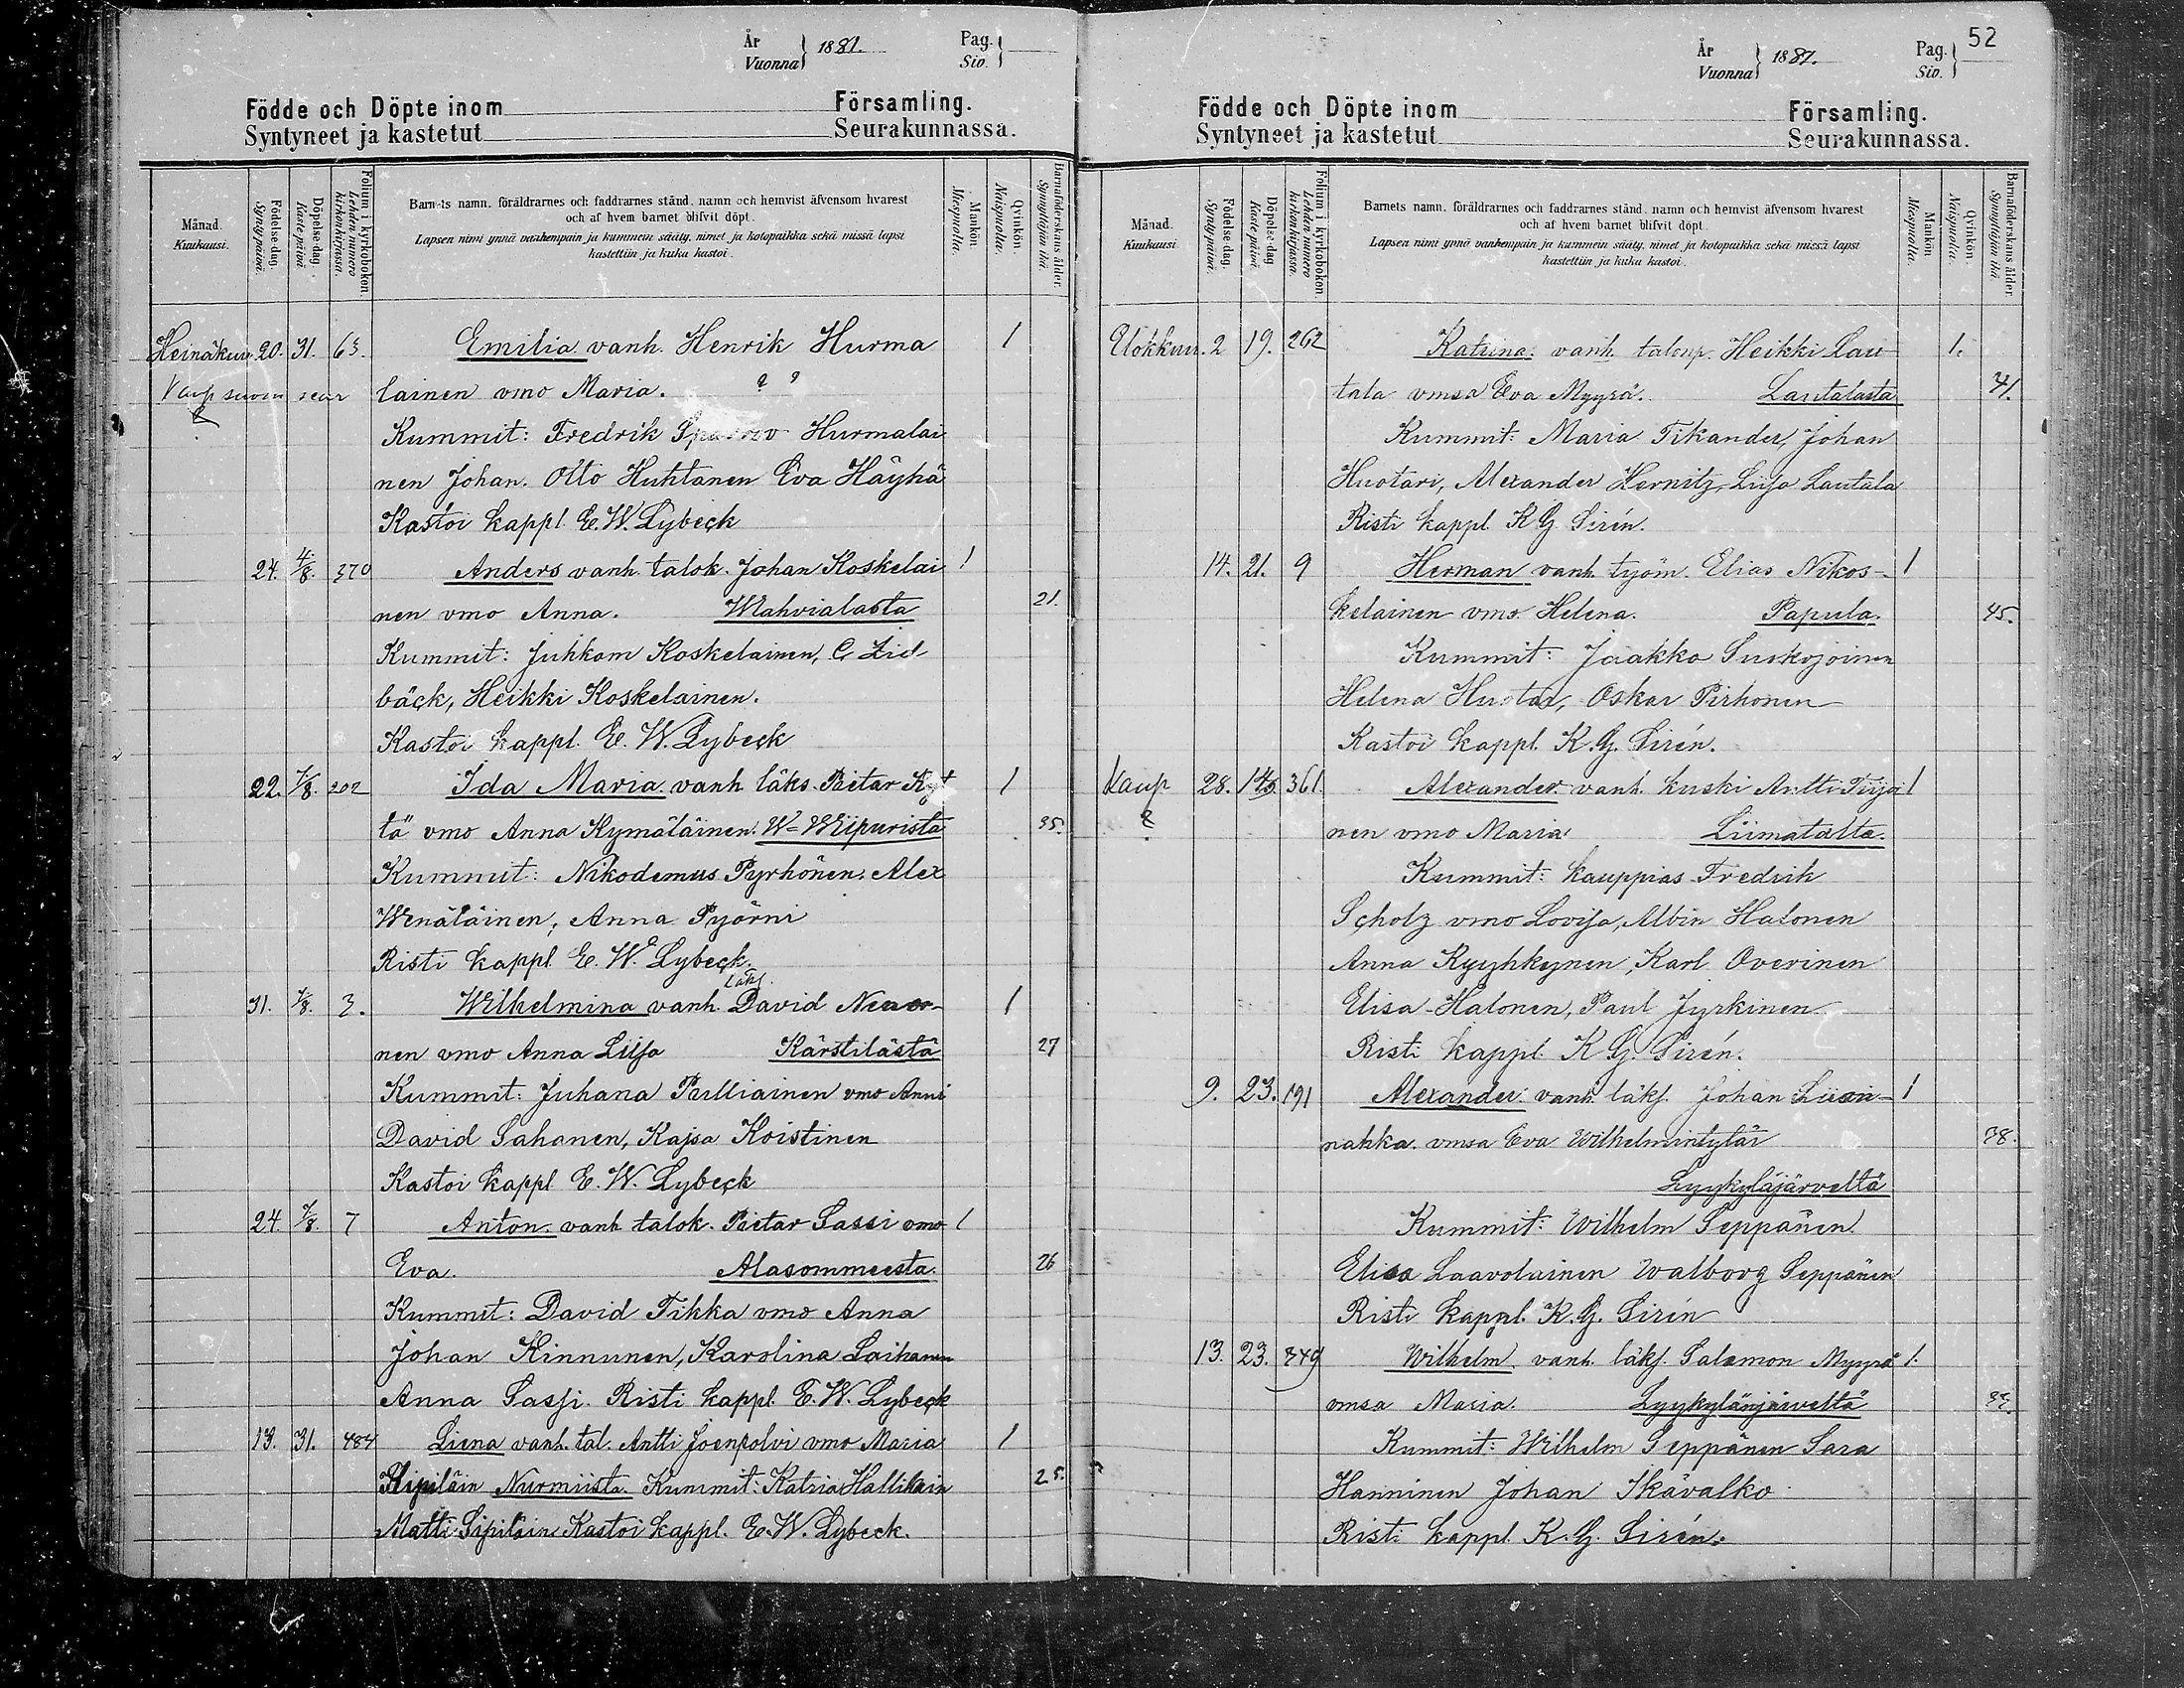 År
Vuonna } 1881.
Pag.
Siv.
Födde och Döpte inom Församling.
Syntyneet ja kastetut Seurakunnassa.
Månad.
Kuukausi.
Födelse dag.
Synty päivä.
Döpelse dag.
Kaste päivä
Folium i kyrkoboken.
Lehden numero kirkonkirjassa.
Barnets namn, föräldrarnes och faddrarnes stånd, namn och hemvist äfvensom hvarest
och af hvem barnet blifvit döpt.
Lapsen nimi ynnä vanhempain ja kummein sääty, nimet ja kotopaikka sekä missä lapsi
kastettiin ja kuka kastoi.
Mankön.
Miespuolia.
Qvinkön.
Naispuolia.
Barnaföderskans ålder.
Synnyttäjän ikä.
Heinäkuu 20. 31. 63. Emilia vanh. Henrik Hurma 1
Kaup suom seur lainen vmo Maria. ? ?
Kummit: Fredrik Hurmalai
nen Johan. Otto Huhtanen Eva Häyhä
Kastoi kappl. E. W. Lybeck
24. 4/8. 370 Anders vanh. talok. Johan Koskelai 1
nen vmo Anna. Mahvialasta 21.
Kummit: Juhkom Koskelainen, C Lid
bäck, Heikki Koskelainen.
Kastoi kappl. E. W. Lybeck
22. 7/8. 202 Ida Maria vanh läks. Pietar Kyt 1
tä vmo Anna Kymäläinen. W= Wiipurista 35.
Kummit: Nikodemus Pyrhönen. Alex
Wenäläinen, Anna Pyörni
Risti kappl. E. W. Lybeck.
31. 7/8. 3. Wilhelmina vanh. läks. David 1
nen vmo Anna Liisa Kärstilästä 27
Kummit: Juhana Pulliainen vmo Anni
David Sahanen, Kajsa Koistinen
Kastoi kappl E. W. Lybeck
24. 7/8. 7 Anton vanh talok. Pietar Sassi vmo 1
Eva. Alasommeesta. 26
Kummit: David Tikka vmo Anna
Johan Kinnunen, Karolina Laihanen
Anna Sassi. Risti kappl. E. W. Lybeck
13. 31. 484 Liena vanh. tal. Antti Joenpolvi vmo Maria 1
Sipiläin Nurmiista. Kummit: Katria Hallikain 25.
Matti Sipiläin Kastoi kappl. E. W. Lybeck.
52
År
Vuonna } 1881.
Pag.
Siv.
Födde och Döpte inom Församling.
Syntyneet ja kastetut Seurakunnassa.
Månad.
Kuukausi
Födelse dag.
Synty päivä.
Döpelse dag
Kaste päivä.
Folium i kyrkoboken.
Lehden numero kirkonkirjassa.
Barnets namn, föräldrarnes och faddrarnes stånd, namn och hemvist äfvensom hvarest
och af hvem barnet blifvit döpt.
Lapsen nimi ynnä vanhempain ja kummein sääty, nimet ja kotopaikka sekä missä lapsi
kastettiin ja kuka kastoi.
Mankön
Miespuolia.
Qvinkön
Naispuolia.
Barnaföderskans ålder
Synnyttäjän ikä.
Elokkuu. 2 19. 262 Katrina. vanh. talonp. Heikki Lau- 1.
tala vmsa Eva Myyrä. Lautalasta 41.
Kummit: Maria Tikander, Johan
Huotari, Alexander Hernitz, Liisa Lautala
Risti kappl. K G Sirén.
14. 21. 9 Herman vanh. työm. Elias Nikos- 1
kelainen vmo. Helena. Papula. 45.
Kummit: Jaakko Suskojoinen
Helena Huotar, Oskar Pirhonen
Kastoi kappl. K. G. Sirén.
Kaup 28. 361. Alexander vanh. kuski Antti Tiijoi 1
nen vmo Maria Liimatalta.
Kummit: kauppias Fredrik
Scholz vmo Lovisa, Albin Halonen
Anna Kyyhkynen, Karl Overinen
Elisa Halonen, Paul Jyrkinen
Risti kappl. K G. Sirén.
9. 23. 191 Alexander vanh. läks. Johan Liisi- 1
nahka. vmsa Eva Wilhelmintytär 38.
Lyykyläjärveltä
Kummit: Wilhelm Seppänen
Elisa Laavolainen Walborg Seppänen
Risti kappl. K. G. Sirén
13. 23. 349 Wilhelm vanh. läks. Salamon Myyrä 1.
vmsa Maria. Lyykylänjärveltä 33.
Kummit: Wilhelm Seppänen Sara
Hanninen Johan Ikävalko
Risti kappl. K. G. Sirén.